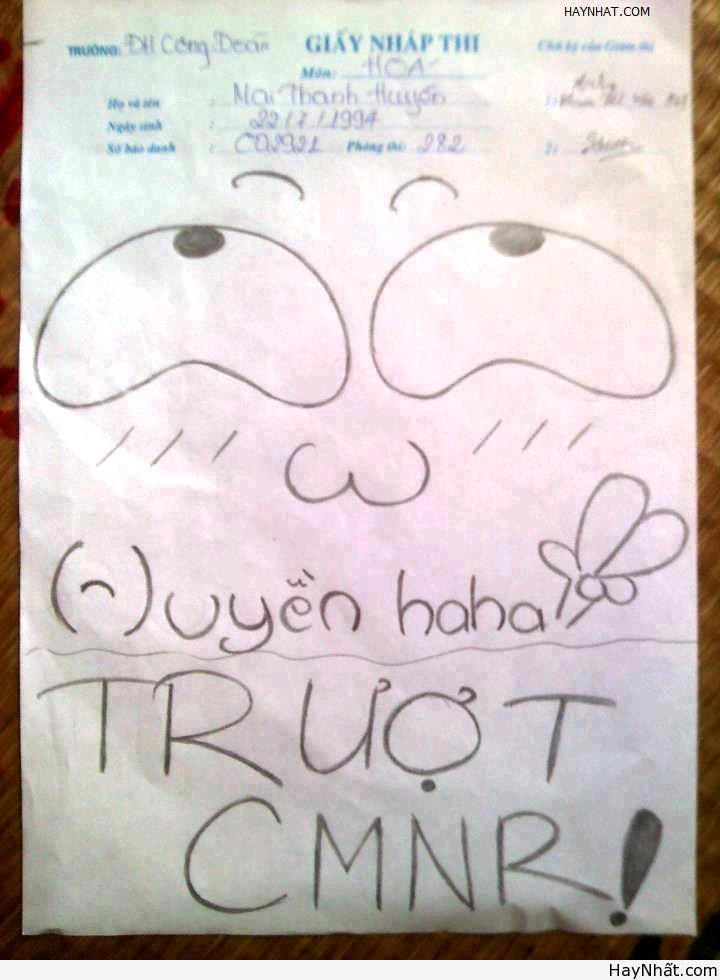 HAYNHAT.COM
TRƯỜNG: ĐH Công Đoàn GIẤY NHÁP THI Chữ ký của Giám thị
Môn: HÓA
Họ và tên : Mai Thanh Huyền 1:
Ngày sinh : 22/7/1994
Số báo danh : C02921 Phòng thi: 282 2:
Huyền haha
TRƯỢT
CMNR!
HayNhất.com